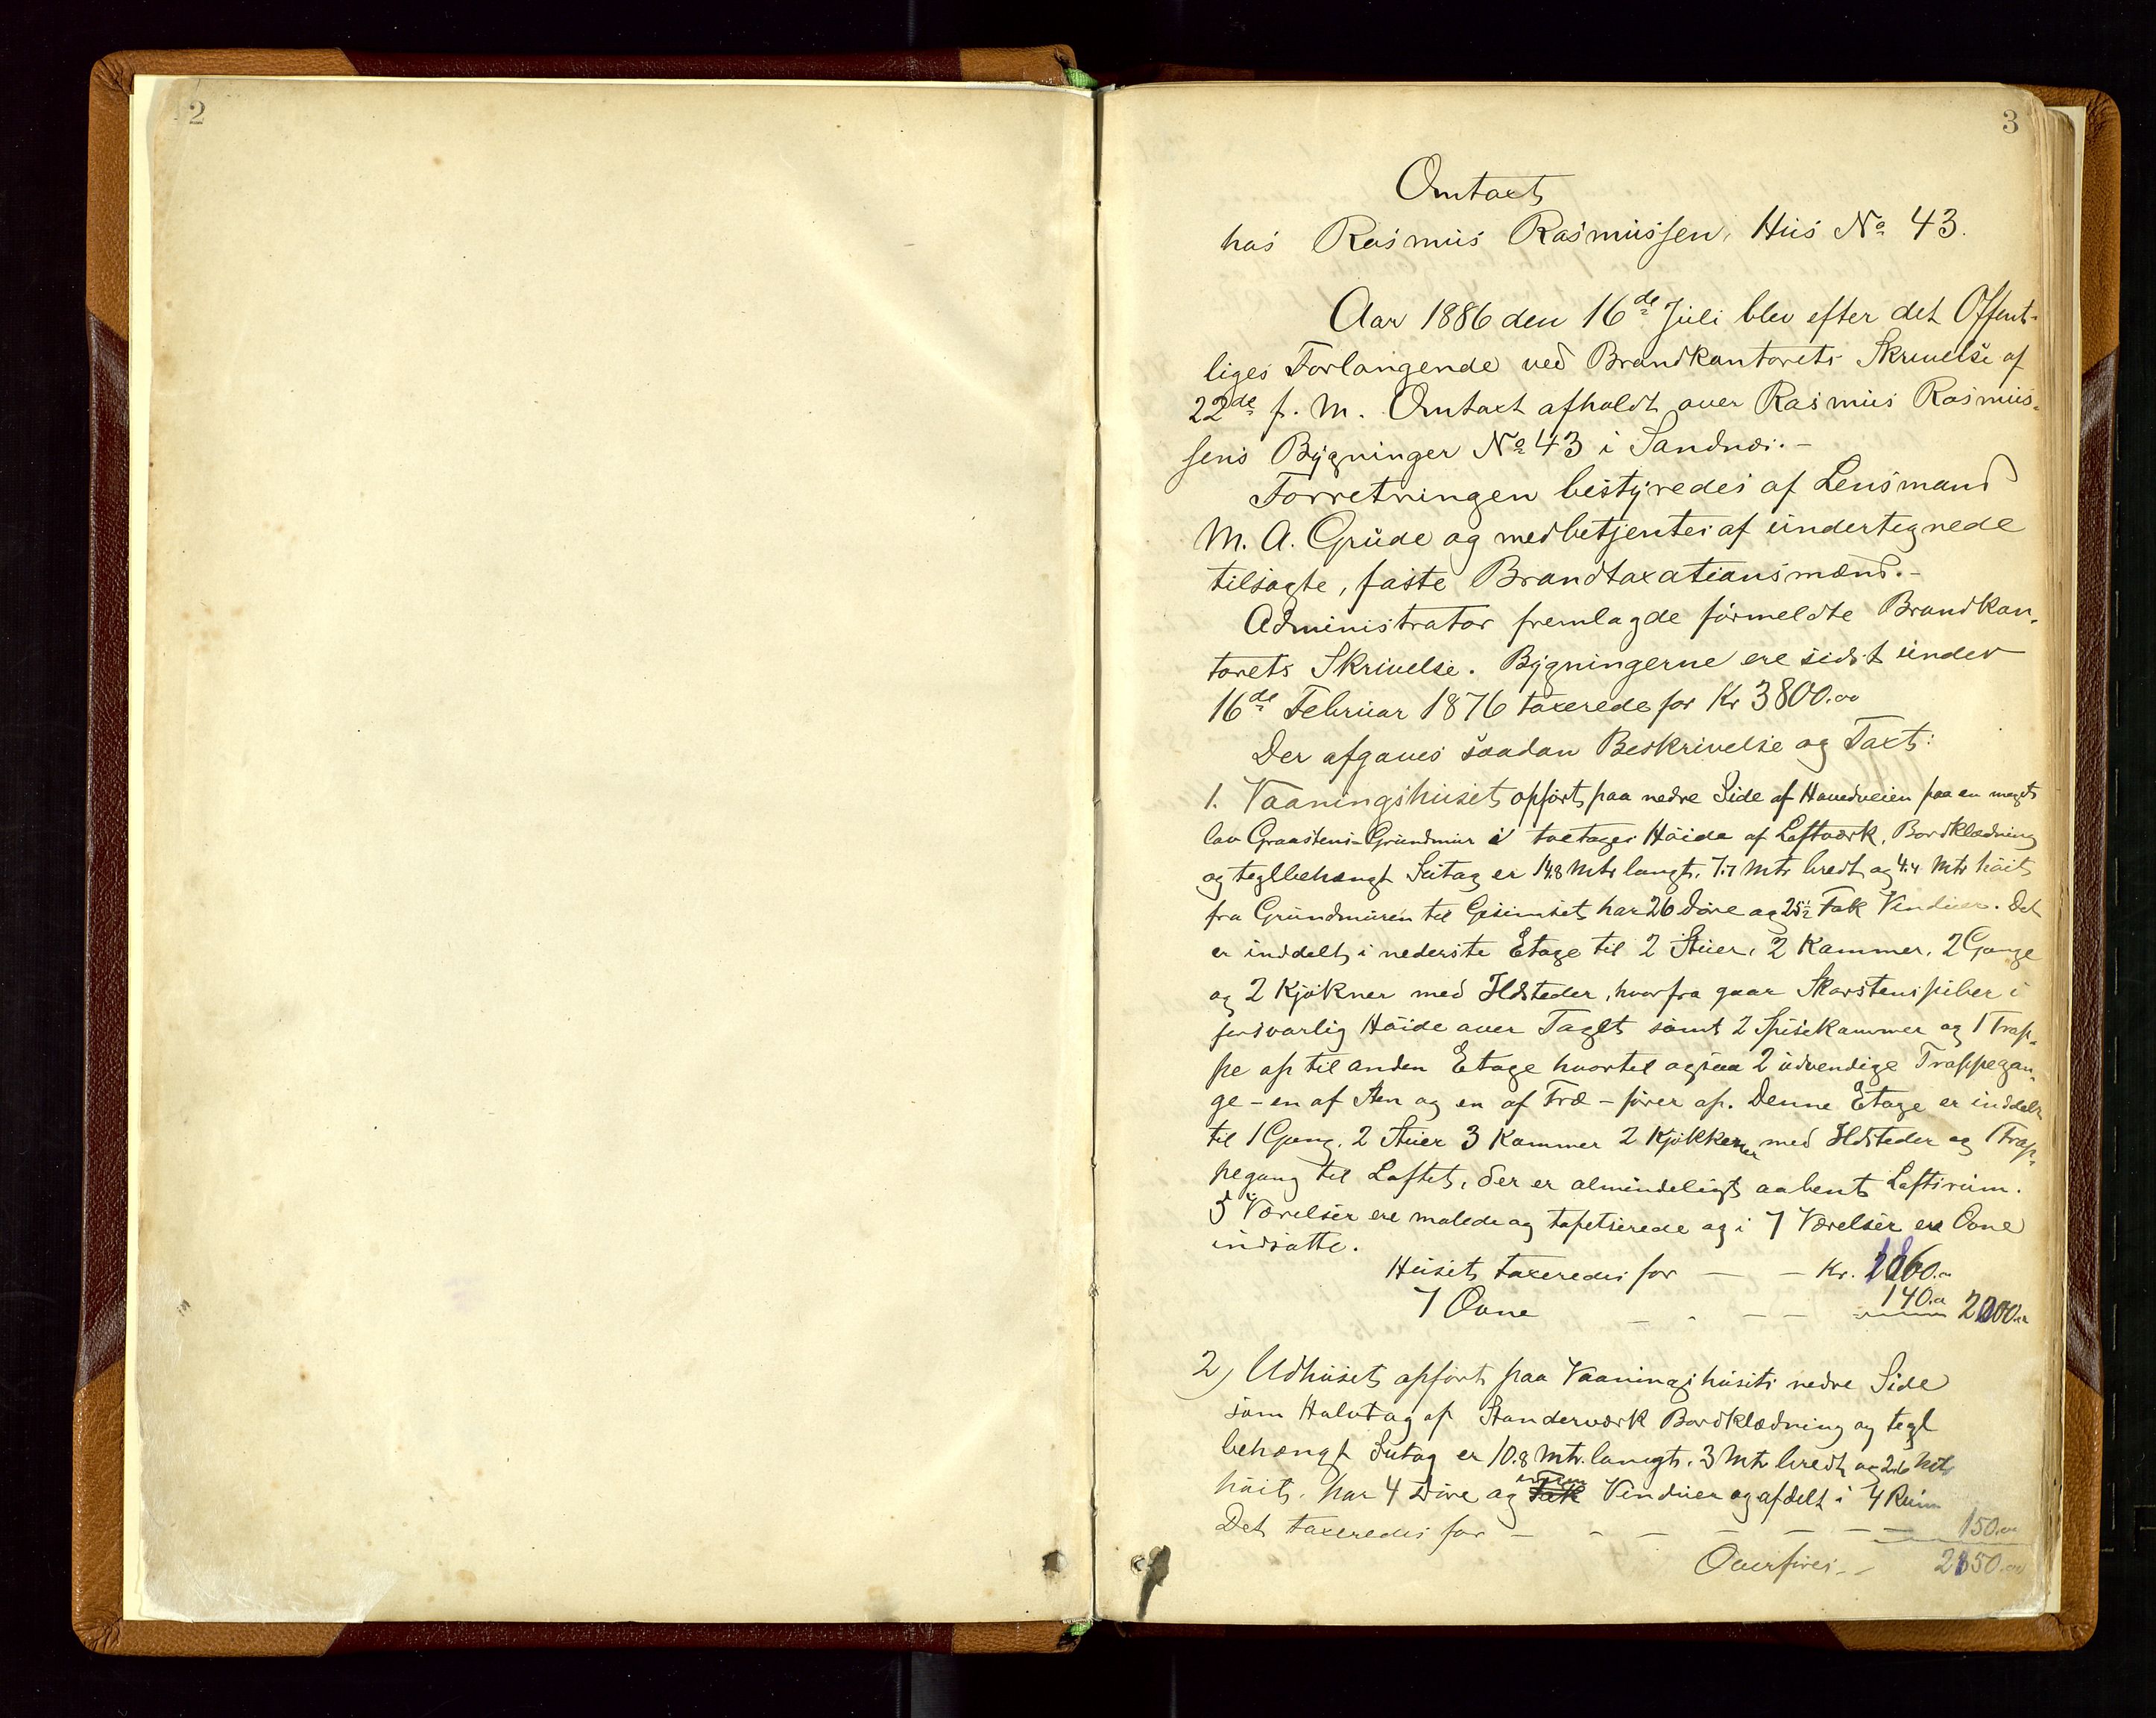 2
3
Omtaxt
hos Rasmus Rasmussen, Hus No 43.
Aar 1886 den 16de Juli blev efter det Offent-
liges Forlangende ved Brandkontorets Skrivelse af
22de f. M. Omtaxt afholdt over Rasmus Rasmus-
sens Bygninger No 43 i Sandnæs.-
Forretningen bestyredes af Lensmand
M. A. Grude og medbetjentes af undertegnede
tilsagte, faste Brandtaxationsmænd.-
Administrator fremlagde førmeldte Brandkon-
torets Skrivelse. Bygningerne ere sidst under
16de Februar 1876 taxerede for Kr 3800.00
Der afgaves saadan Beskrivelse og Taxt:
1. Vaaningshuset opført paa nedre Side af Hovedveien paa en meget
lav Graastens-Grundmur i toetages Høide af Loftværk, Bordklædning
og teglbehængt Sutag er 14.8 Mtr langt, 7.7 Mtr bredt og 4.4 Mtr høit
fra Grundmuren til Gesimset har 26 Døre og 25½ Fak Vinduer. Det
er inddelt i nederste Etage til 2 Stuer, 2 Kammer, 2 Gange
og 2 Kjøkner med Ildsteder, hvorfra gaar Skorstenspiber i
forsvarlig Høide over Taget samt 2 Spisekammer og 1 Trap-
pe op til anden Etage hvortil ogsaa 2 udvendige Trappegan-
ge - en af Sten og en af Træ - fører op. Denne Etage er inddelt
til 1 Gang, 2 Stuer 3 Kammer 2 Kjøkkener med Ildsteder og 1 Trap-
pegang til Loftet, der er almindeligt aabent Loftsrum.
5 Værelser ere malede og tapetserede og i 7 Værelser ere Ovne
indsatte.
Huset taxeredes for — — Kr. 1860.00
7 Ovne - - — — 140.00 2000.00
2) Udhuset opført paa Vaaningshusets nedre Side
som Halvtag af Standerværk Bordklædning og tegl
behængt Sutag er 10.8 Mtr. langt, 3 Mtr bredt og 2.6 Mtr
høit, har 4 Døre og Fak Vinduer og afdelt i 4 Rum
Det taxeredes for - - — — — — — 150.00
Overføres - - 2150.00